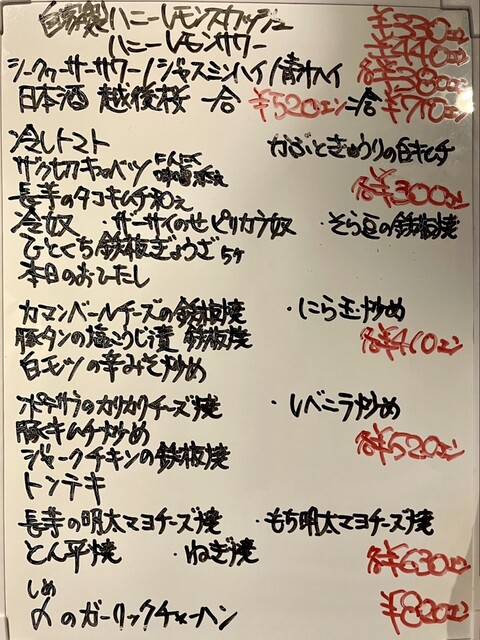 自家製ハニーレモンスカッシュ ¥330エン
ハニーレモンサワー ¥440エン
シークヮーサーサワー/ジャスミンハイ/青汁ハイ 各¥380エン
日本酒 越後桜 一合 ¥520エン 二合 ¥710エン
冷しトマト かぶときゅうりの白キムチ
ザク切キャベツ にんにく味噌添え
長芋のタコキムチ和え 各¥300エン
冷奴 ・ザーサイのせピリカラ奴 ・そら豆の鉄板焼
ひとくち鉄板ぎょうざ5ヶ
本日のおひたし
カマンベールチーズの鉄板焼 ・にら玉炒め
豚タンの塩こうじ漬 鉄板焼 各¥410エン
白モツの辛みそ炒め
ポテサラのカリカリチーズ焼 ・レバニラ炒め
豚キムチ炒め 各¥520エン
ジャークチキンの鉄板焼
トンテキ
長芋の明太マヨチーズ焼 ・もち明太マヨチーズ焼
とん平焼 ・ねぎ焼 各¥630エン
しめ
〆のガーリックチャーハン ¥820エン